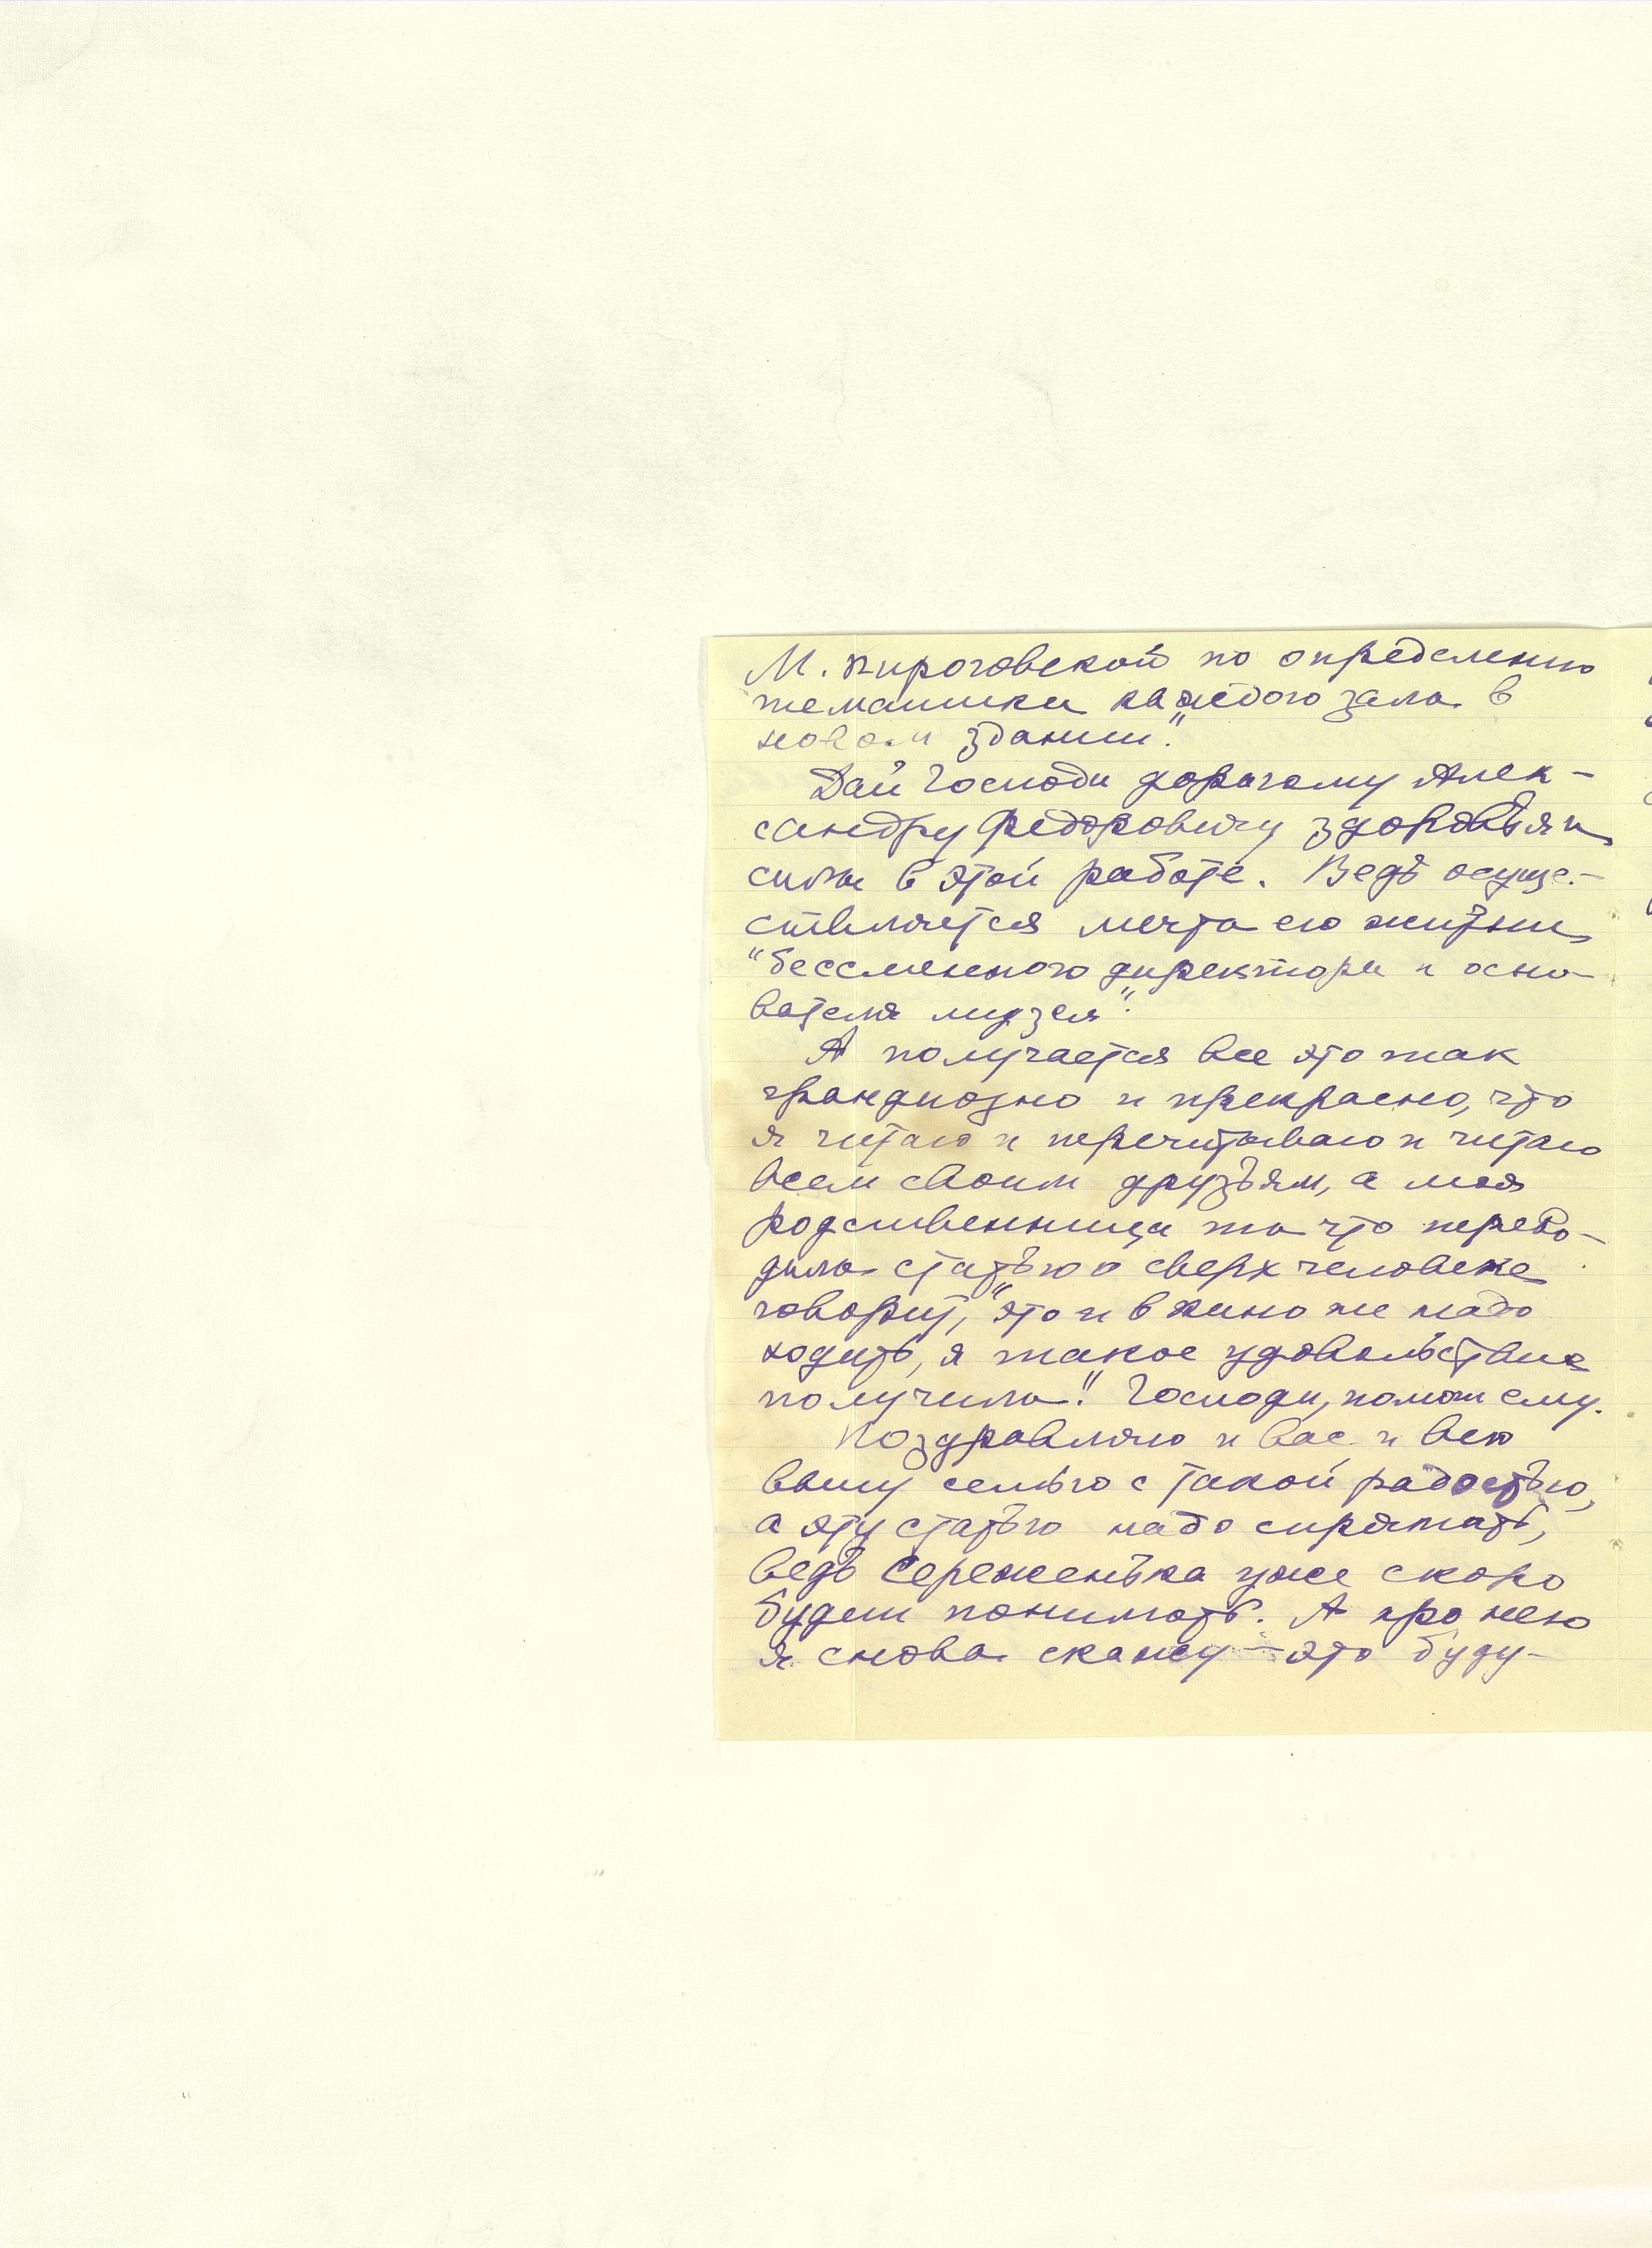 М. Пироговской по определению
тематики каждого зала в
новом здании."
Дай Господи дорогому Алек-
сандру Федоровичу здоровья и
силы в этой работе. Ведь осуще-
ствляется мечта его жизни,
"бессменного директора и осно-
вателя музея".
А получается все это так
грандиозно и прекрасно, что
я читаю и перечитываю и читаю
всем своим друзьям, а моя
родственница та что перево-
дила статью о сверхчеловеке
говорит, "это и в кино не надо
ходить, я такое удовольствие
получила". Господи, помоги ему.
Поздравляю и вас и всю
вашу семью с такой радостью,
а эту статью надо спрятать,
ведь Сереженька уже скоро
будет понимать. А про нею
я снова скажу — это буду-